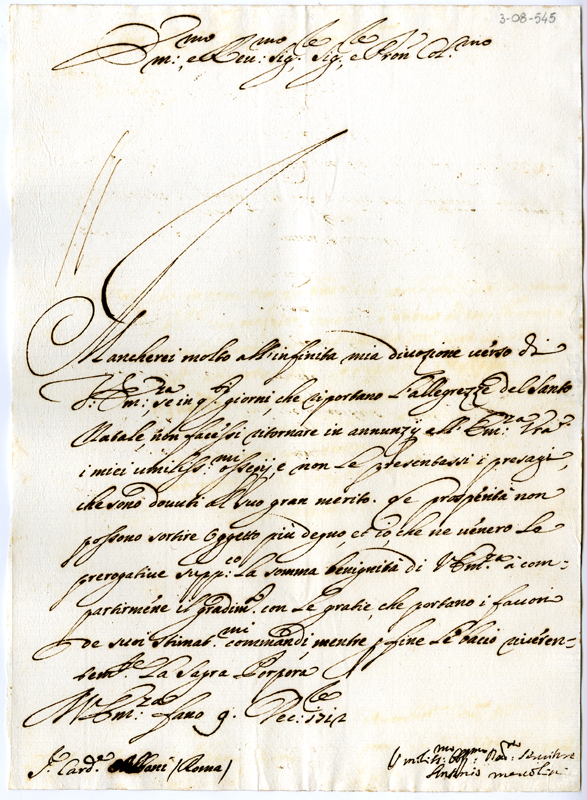 3-08-545
Em:mo e Reu:mo Sig:re Sig:re e Pron Col:mo
Mancherei molto all'infinita mia diuozione uerso di
V: Em:za, se in q:ti giorni, che riportano l'allegrezze del Santo
Natale, non facessi ritornare in annunzÿ all' Em:za Vra
i miei umiliss:mi ossequÿ, e non Le presentassi i presagi,
che sono douuti al suo gran merito.
prosperità non
possono sortire Oggetto più degno et Io che ne uenero Le
prerogatiue supp:co La somma benignità di V Em:za à com-
partirmene il gradim:to con Le gratie, che portano i fauori
de suoi stimat:mi commandi, mentre p fine Le bacio riueren-
tem:te La Sagra Porpora
Di V Em:za Fano 9. Dec:
S:r Card:e Albani (Roma)
Umiliss:mo
Seruitore
Antonio